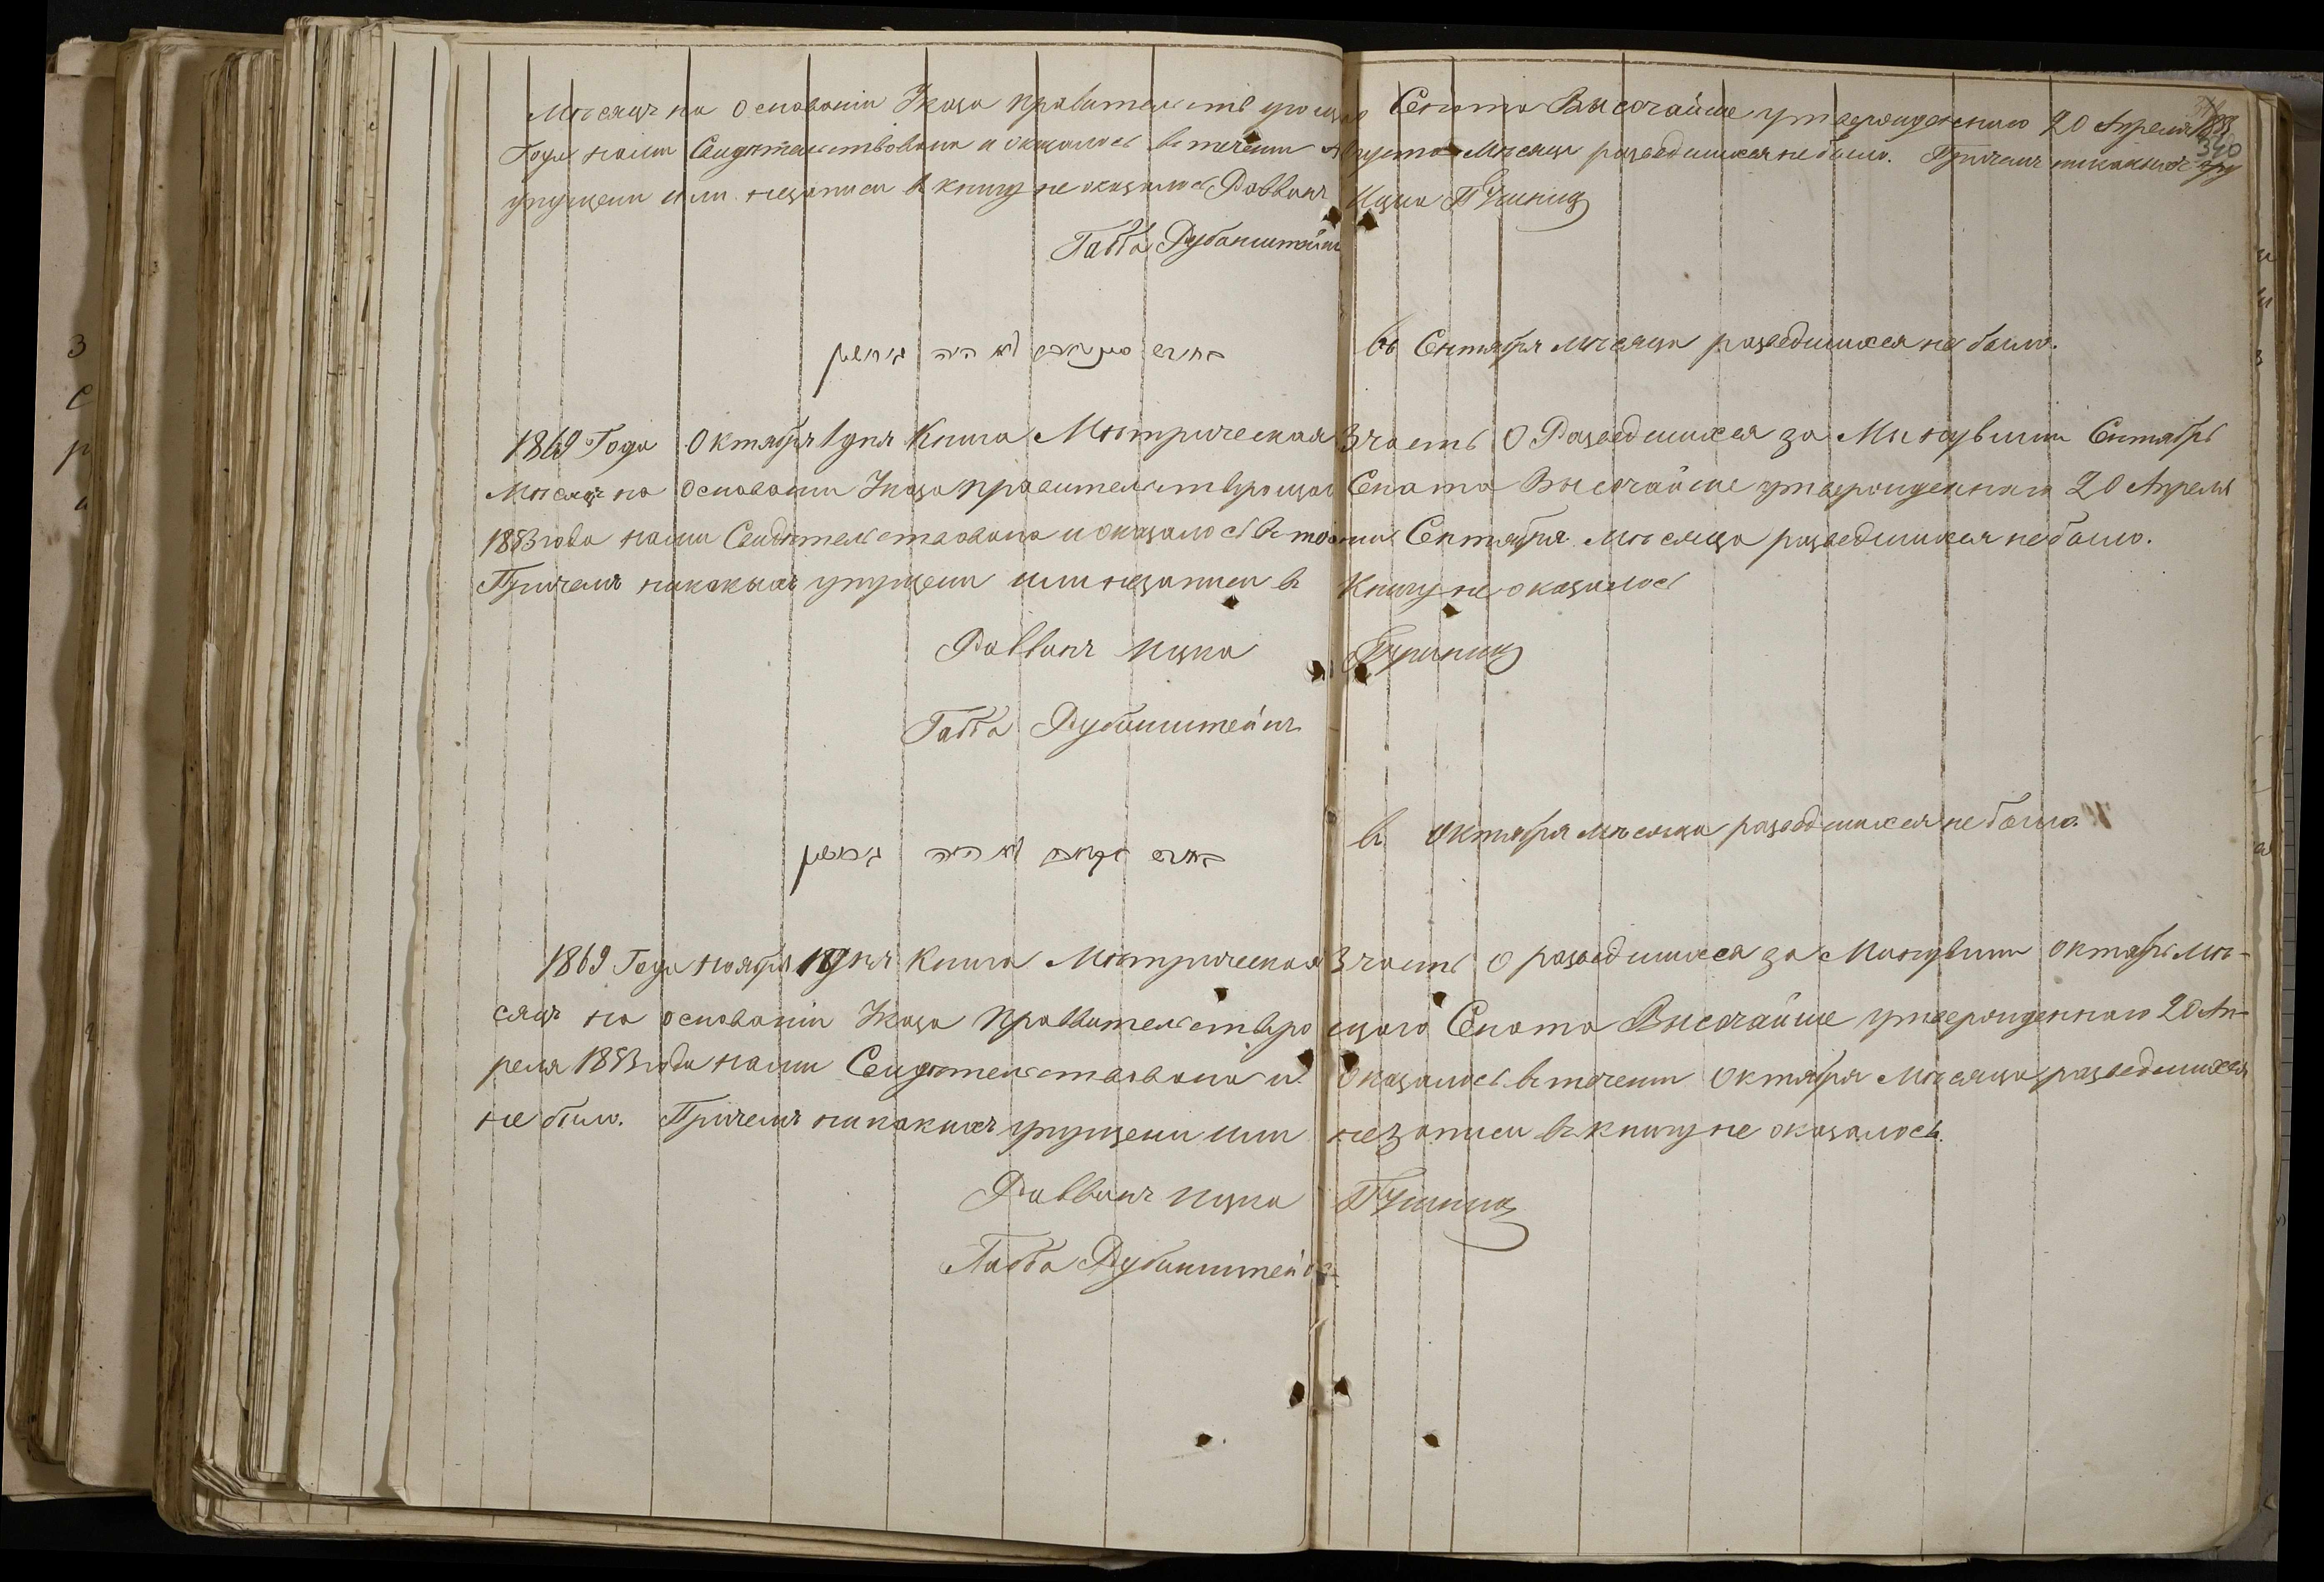 Мѣсяцъ на основаніи Указа правительствующаго Сената Высочайше утвержденнаго 20 Апреля 1853
Года нами Свидѣтельствована и оказалось въ течении Августа Мѣсяца разведшихся не было. Притомъ никакихъ
упущени или незаписи в книгу не оказалось Раввинъ Ицка
Габба Рубанштейнъ
בחודש סעפטעמבער לא היה גירושין
въ Сентября мѣсяца разведшихся не было.
1869 Года Октября 1 дня Книга Метрическая 3 часть О Разведшихся за Минувши Сентябрь
Мѣсяцъ на основании Указа правительствующаго Сената Высочайше утвержденнаго 20 Апреля
1853 года нами Свидѣтельствована и оказалось в течении Сентября мѣсяца разведшихся не было.
Притемъ никакихъ упущени или незаписи в Книгу не оказалось
Раввинъ Ицка
Габба Рубанштейнъ
בחודש אקטאבער לא היה גירושין
в октября мѣсяца разведшихся не было.
1869 Года ноября дня Книга Метрическая 3 часть О разведшихся за Минувши октябрь мѣ-
сяцъ на основаніи Указа Правительствующаго Сената Высочайше утвержденнаго 20 Ап-
реля 1853 года нами Свидѣтельствована и оказалось в течении Октября Мѣсяца разведшихся
не было. Притемъ никакихъ упущени или незаписи в книгу не оказалось.
Раввинъ Ицка
Габба Рубанштейнъ